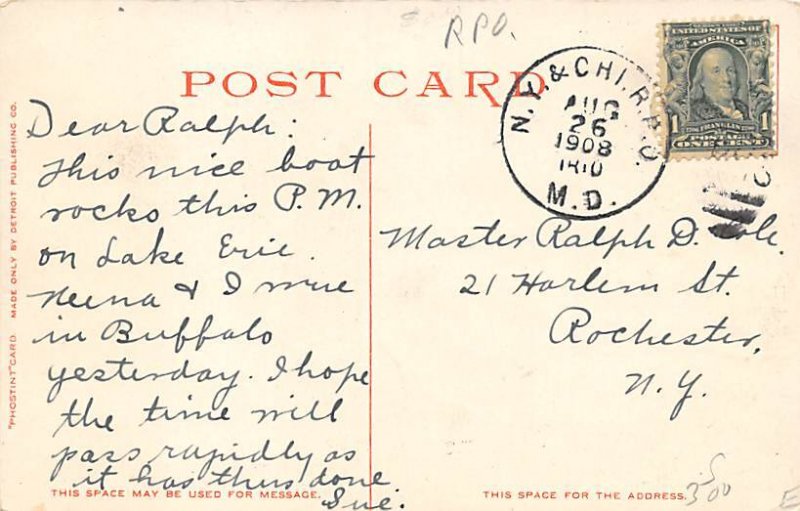 RPO.
POST CARD
N.Y. & CHI. R.P.O.
AUG
26
1908
TR10
M.D.
UNITED STATES OF
AMERICA
1 FRANKLIN 1
POSTAGE
ONE CENT
Dear Ralph:
This nice boat
rocks this P.M.
on Lake Erie.
Neena & I were
in Buffalo
yesterday. I hope
the time will
pass rapidly as
it has thus done.
Sue.
Master Ralph D. Cole.
21 Harlem St.
Rochester,
N.Y.
"PHOSTINT" CARD. MADE ONLY BY DETROIT PUBLISHING CO.
THIS SPACE MAY BE USED FOR MESSAGE.
THIS SPACE FOR THE ADDRESS.
E